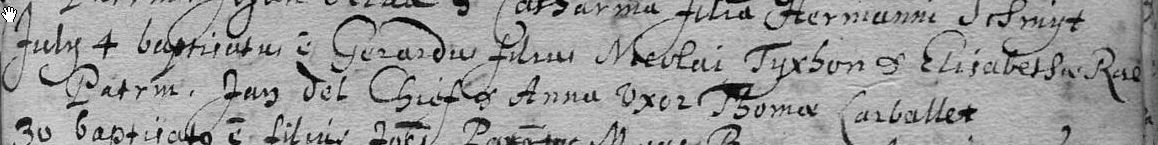 Catharina filia Hermanni Schmyt
July 4 baptisatus ē Gerardus filius Nicolai Tyxhon & Elisabetha Rae
Patrin. Jan del Chief & Anna Uxor Thomæ Carballet
30 baptisatꝯ ē filius